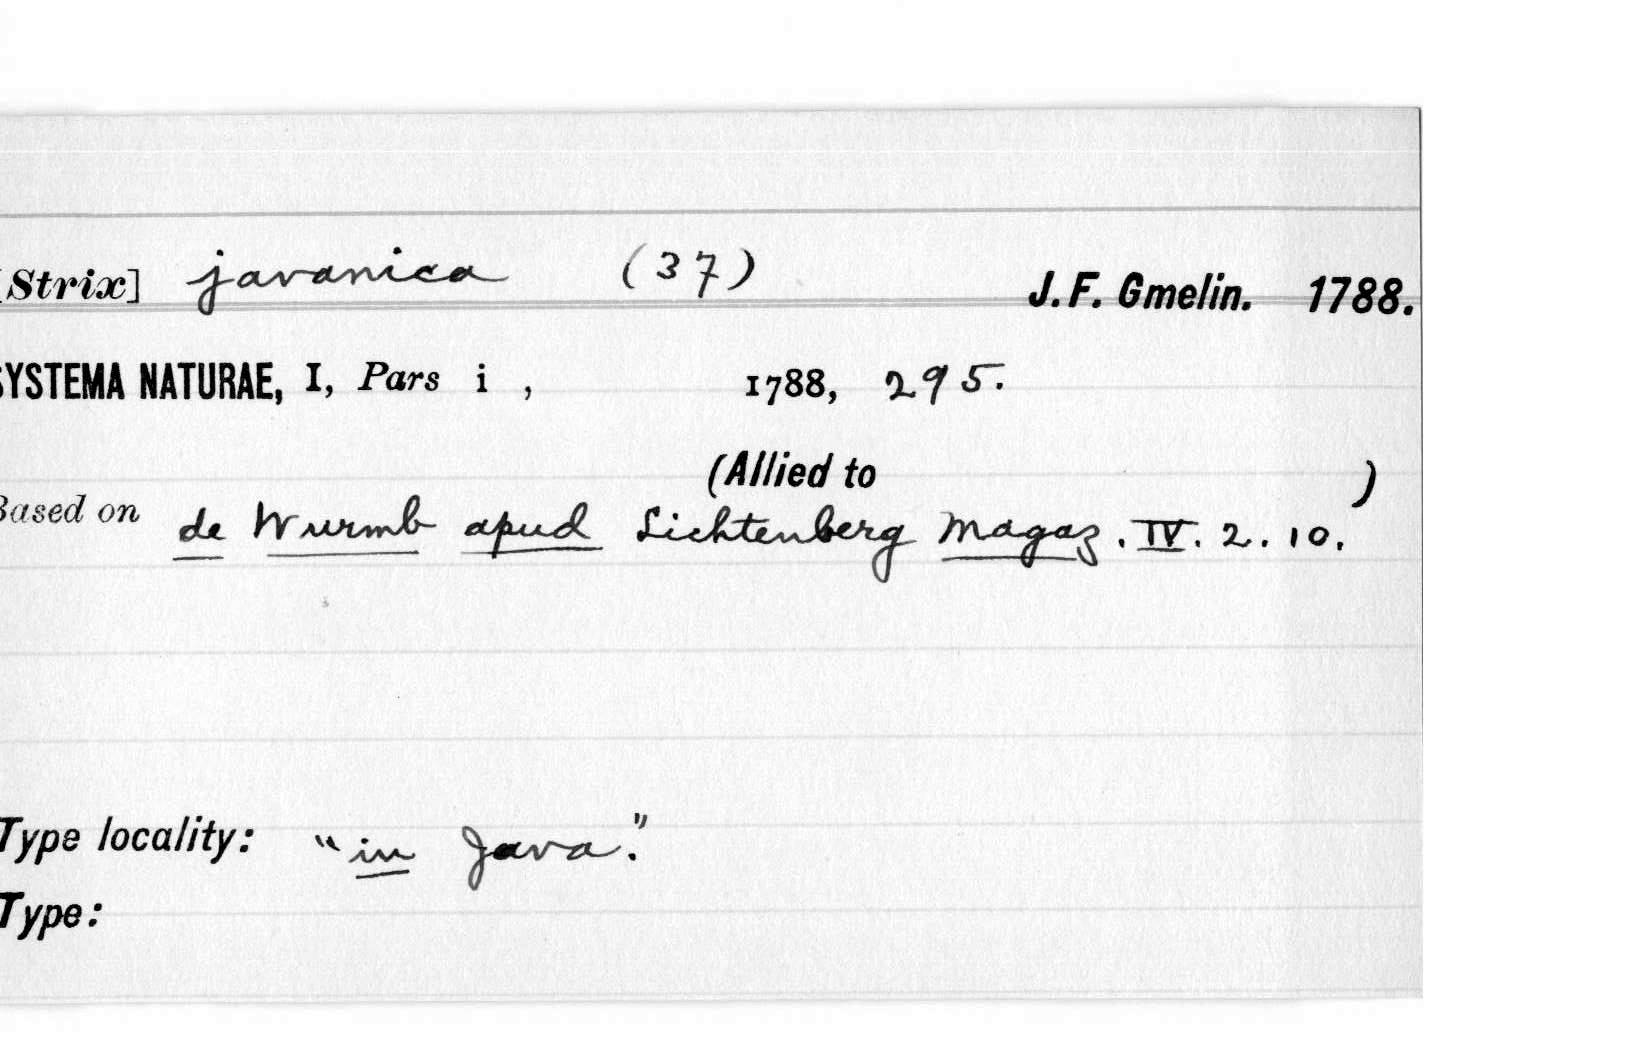 [Strix] javanica (37) J. F. Gmelin. 1788.
SYSTEMA NATURAE, I, Pars i , 1788, 295.
(Allied to )
Based on de Wurmb apud Lichtenberg Magaz. IV. 2. 10.
Type locality: "in Java."
Type: